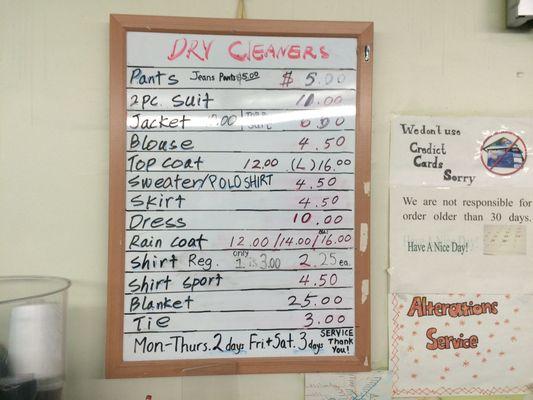 DRY CLEANERS
Pants Jeans Pants $5.00 $ 5.00
2pc. Suit 11.00
Jacket
Blouse 4.50
Top coat 12.00 (L) 16.00
Sweater/POLO SHIRT 4.50
Skirt 4.50
Dress 10.00
Rain coat 12.00/14.00/16.00
Shirt Reg. only 1 is 3.00 2.25 ea.
Shirt sport 4.50
Blanket 25.00
Tie 3.00
Mon-Thurs. 2 days Fri+Sat. 3 days SERVICE Thank You!
We don't use
Credict
Cards
Sorry
We are not responsible for
order older than 30 days.
Have A Nice Day!
Alterations
Service